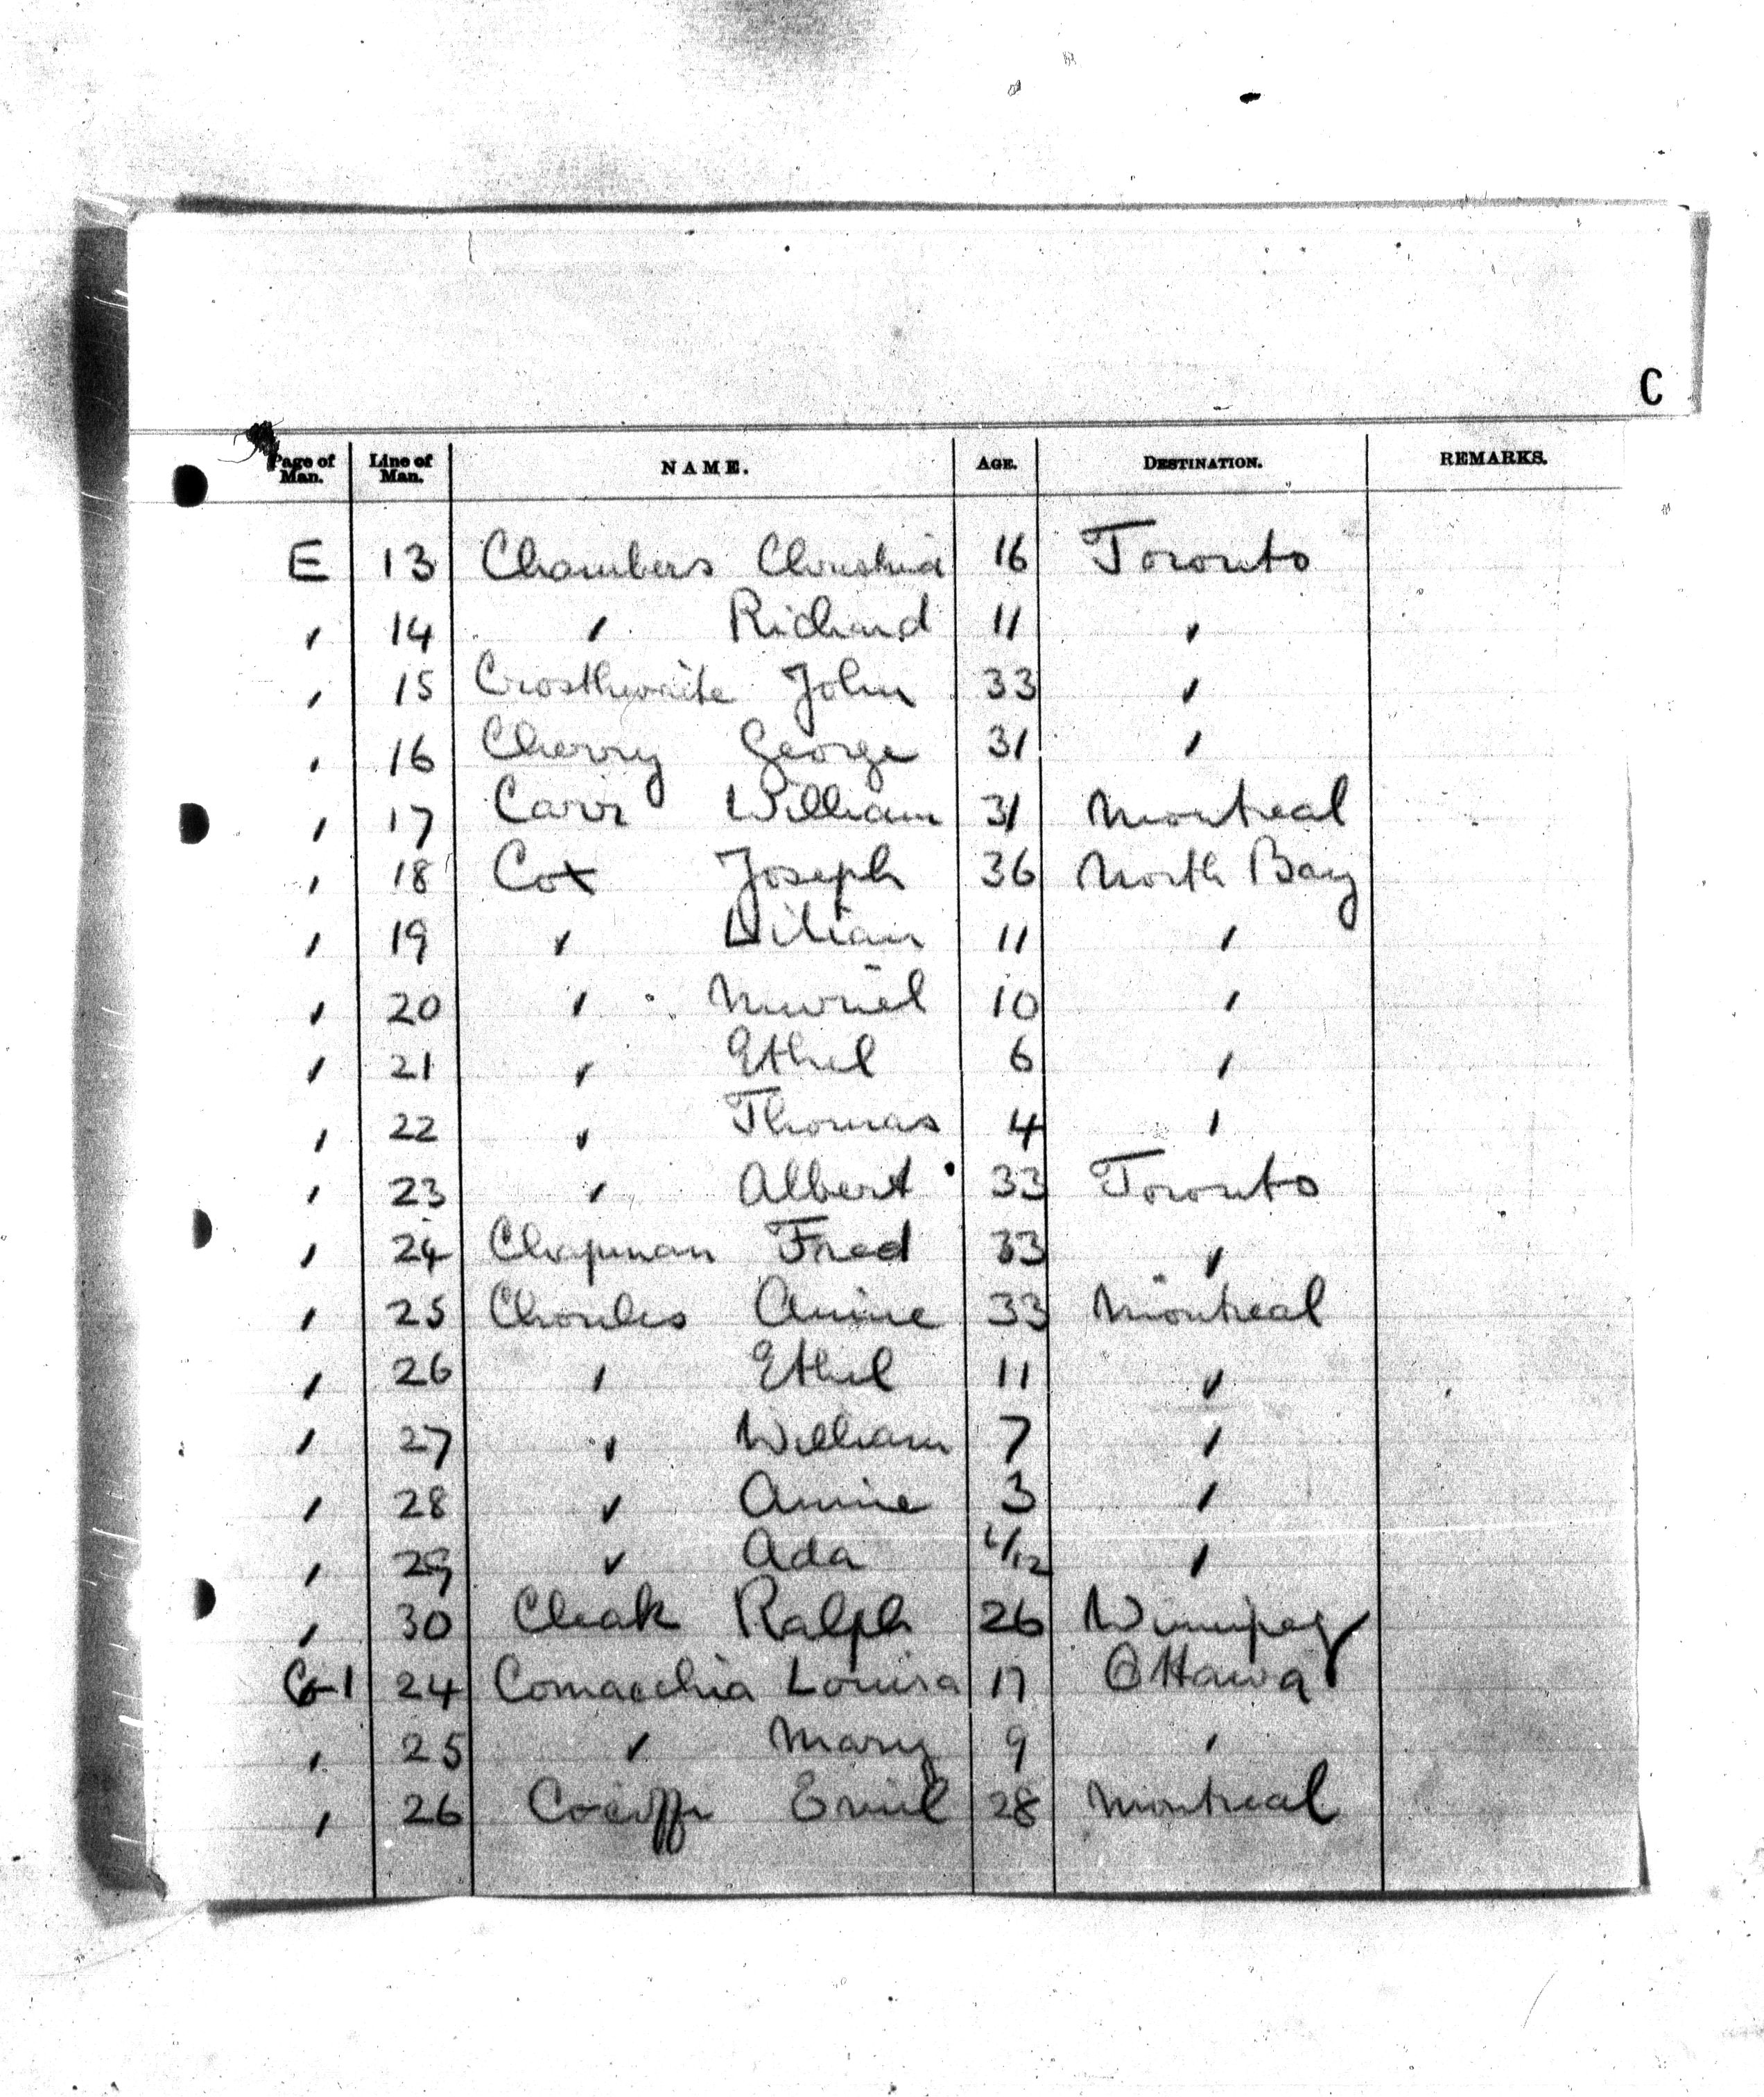 C
Page of Man. Line of Man. NAME. AGE. DESTINATION. REMARKS.
E 13 Chambers Christina 16 Toronto
" 14 " Richard 11 "
" 15 Crosthwaite John 33 "
" 16 Cherry George 31 "
" 17 Carr William 31 Montreal
" 18 Cox Joseph 36 North Bay
" 19 " Lilian 11 "
" 20 " Muriel 10 "
" 21 " Ethel 6 "
" 22 " Thomas 4 "
" 23 " Albert 33 Toronto
" 24 Chapman Fred 33 "
" 25 Choules Annie 33 Montreal
" 26 " Ethel 11 "
" 27 " William 7 "
" 28 " Annie 3 "
" 29 " Ada /12 "
" 30 Cleak Ralph 26 Winnipeg
24 Comacchia Louisa 17 Ottawa
" 25 " Mary 9 "
" 26 Emil 28 Montreal